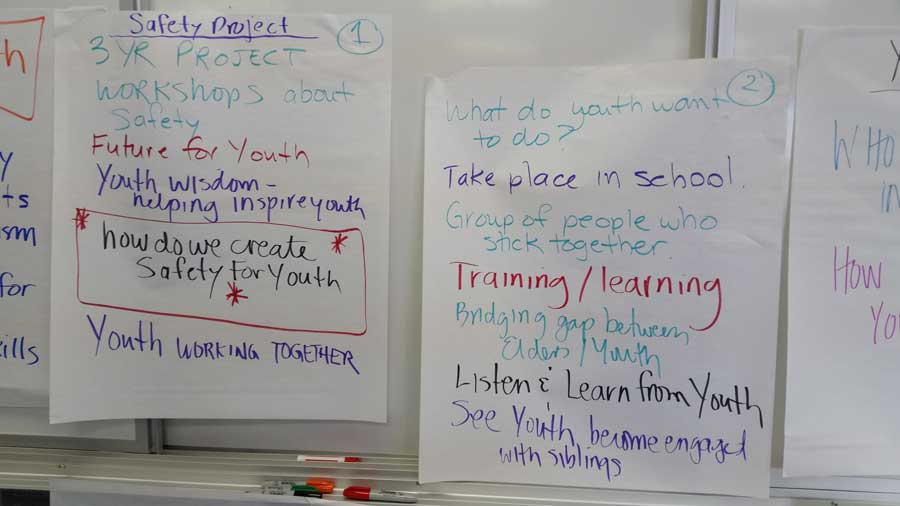 h
y
ts
ism
for
ills
Safety Project
1
3 YR PROJECT
WORKSHOPS about
Safety
Future for Youth
Youth wisdom -
helping inspire youth
how do we create
Safety For Youth
Youth WORKING TOGETHER
2
What do youth want
to do?
Take place in school.
Group of people who
stick together.
Training / learning
Bridging gap between
Elders / Youth
Listen & Learn from Youth
See Youth become engaged
with siblings
Y
WHO
in
How
Yo